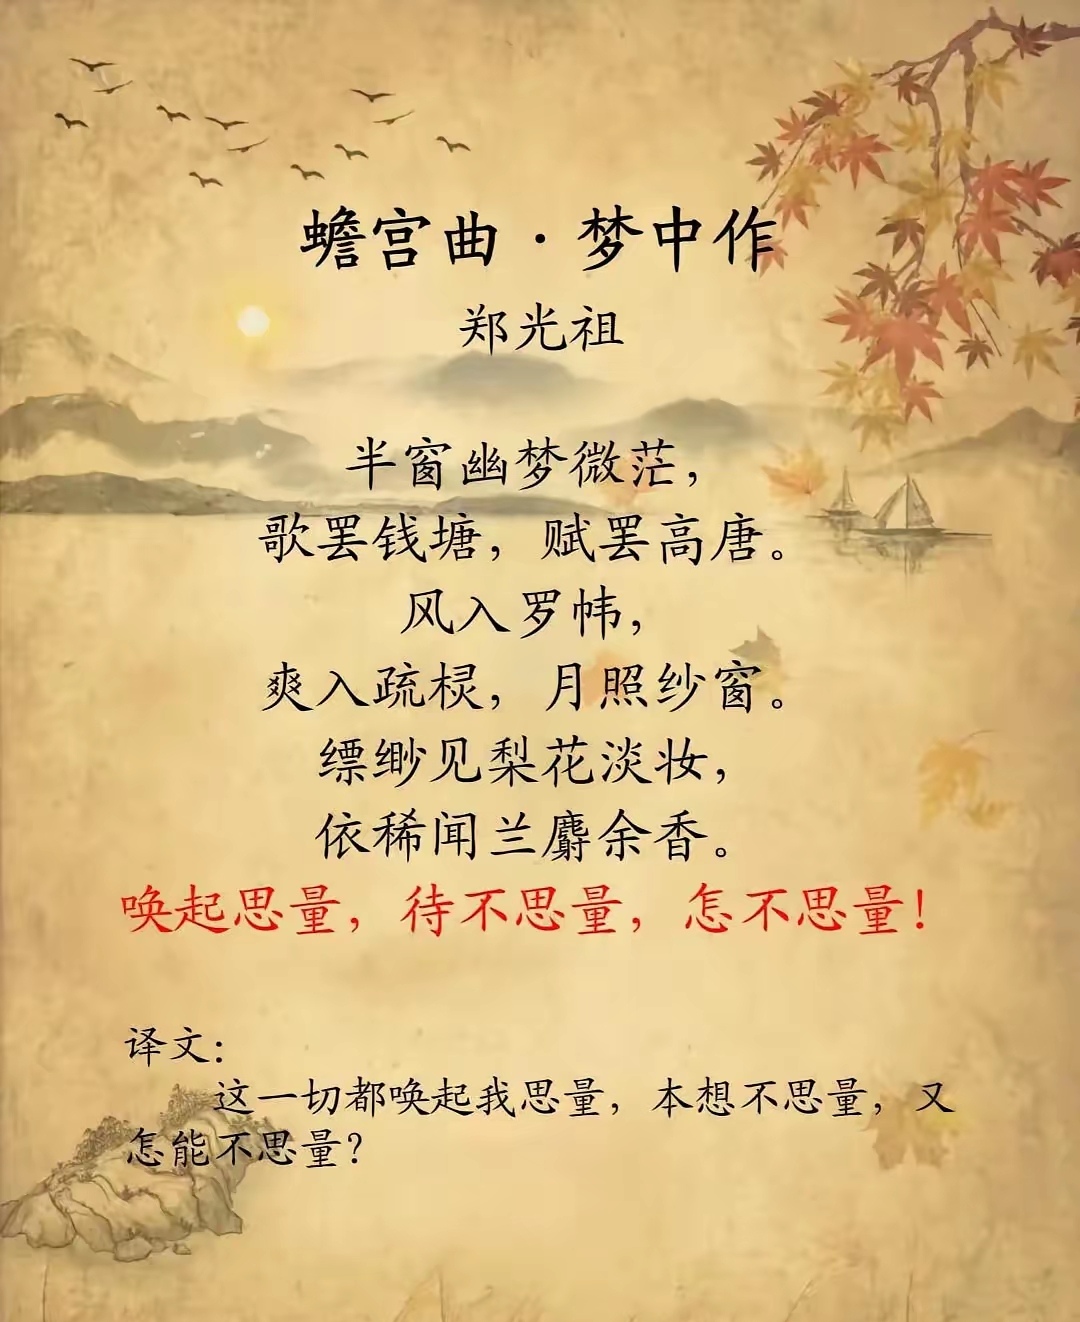 蟾宫曲·梦中作
郑光祖
半窗幽梦微茫，
歌罢钱塘，赋罢高唐。
风入罗帏，
爽入疏棂，月照纱窗。
缥缈见梨花淡妆，
依稀闻兰麝余香。
唤起思量，待不思量，怎不思量！
译文：
这一切都唤起我思量，本想不思量，又
怎能不思量？